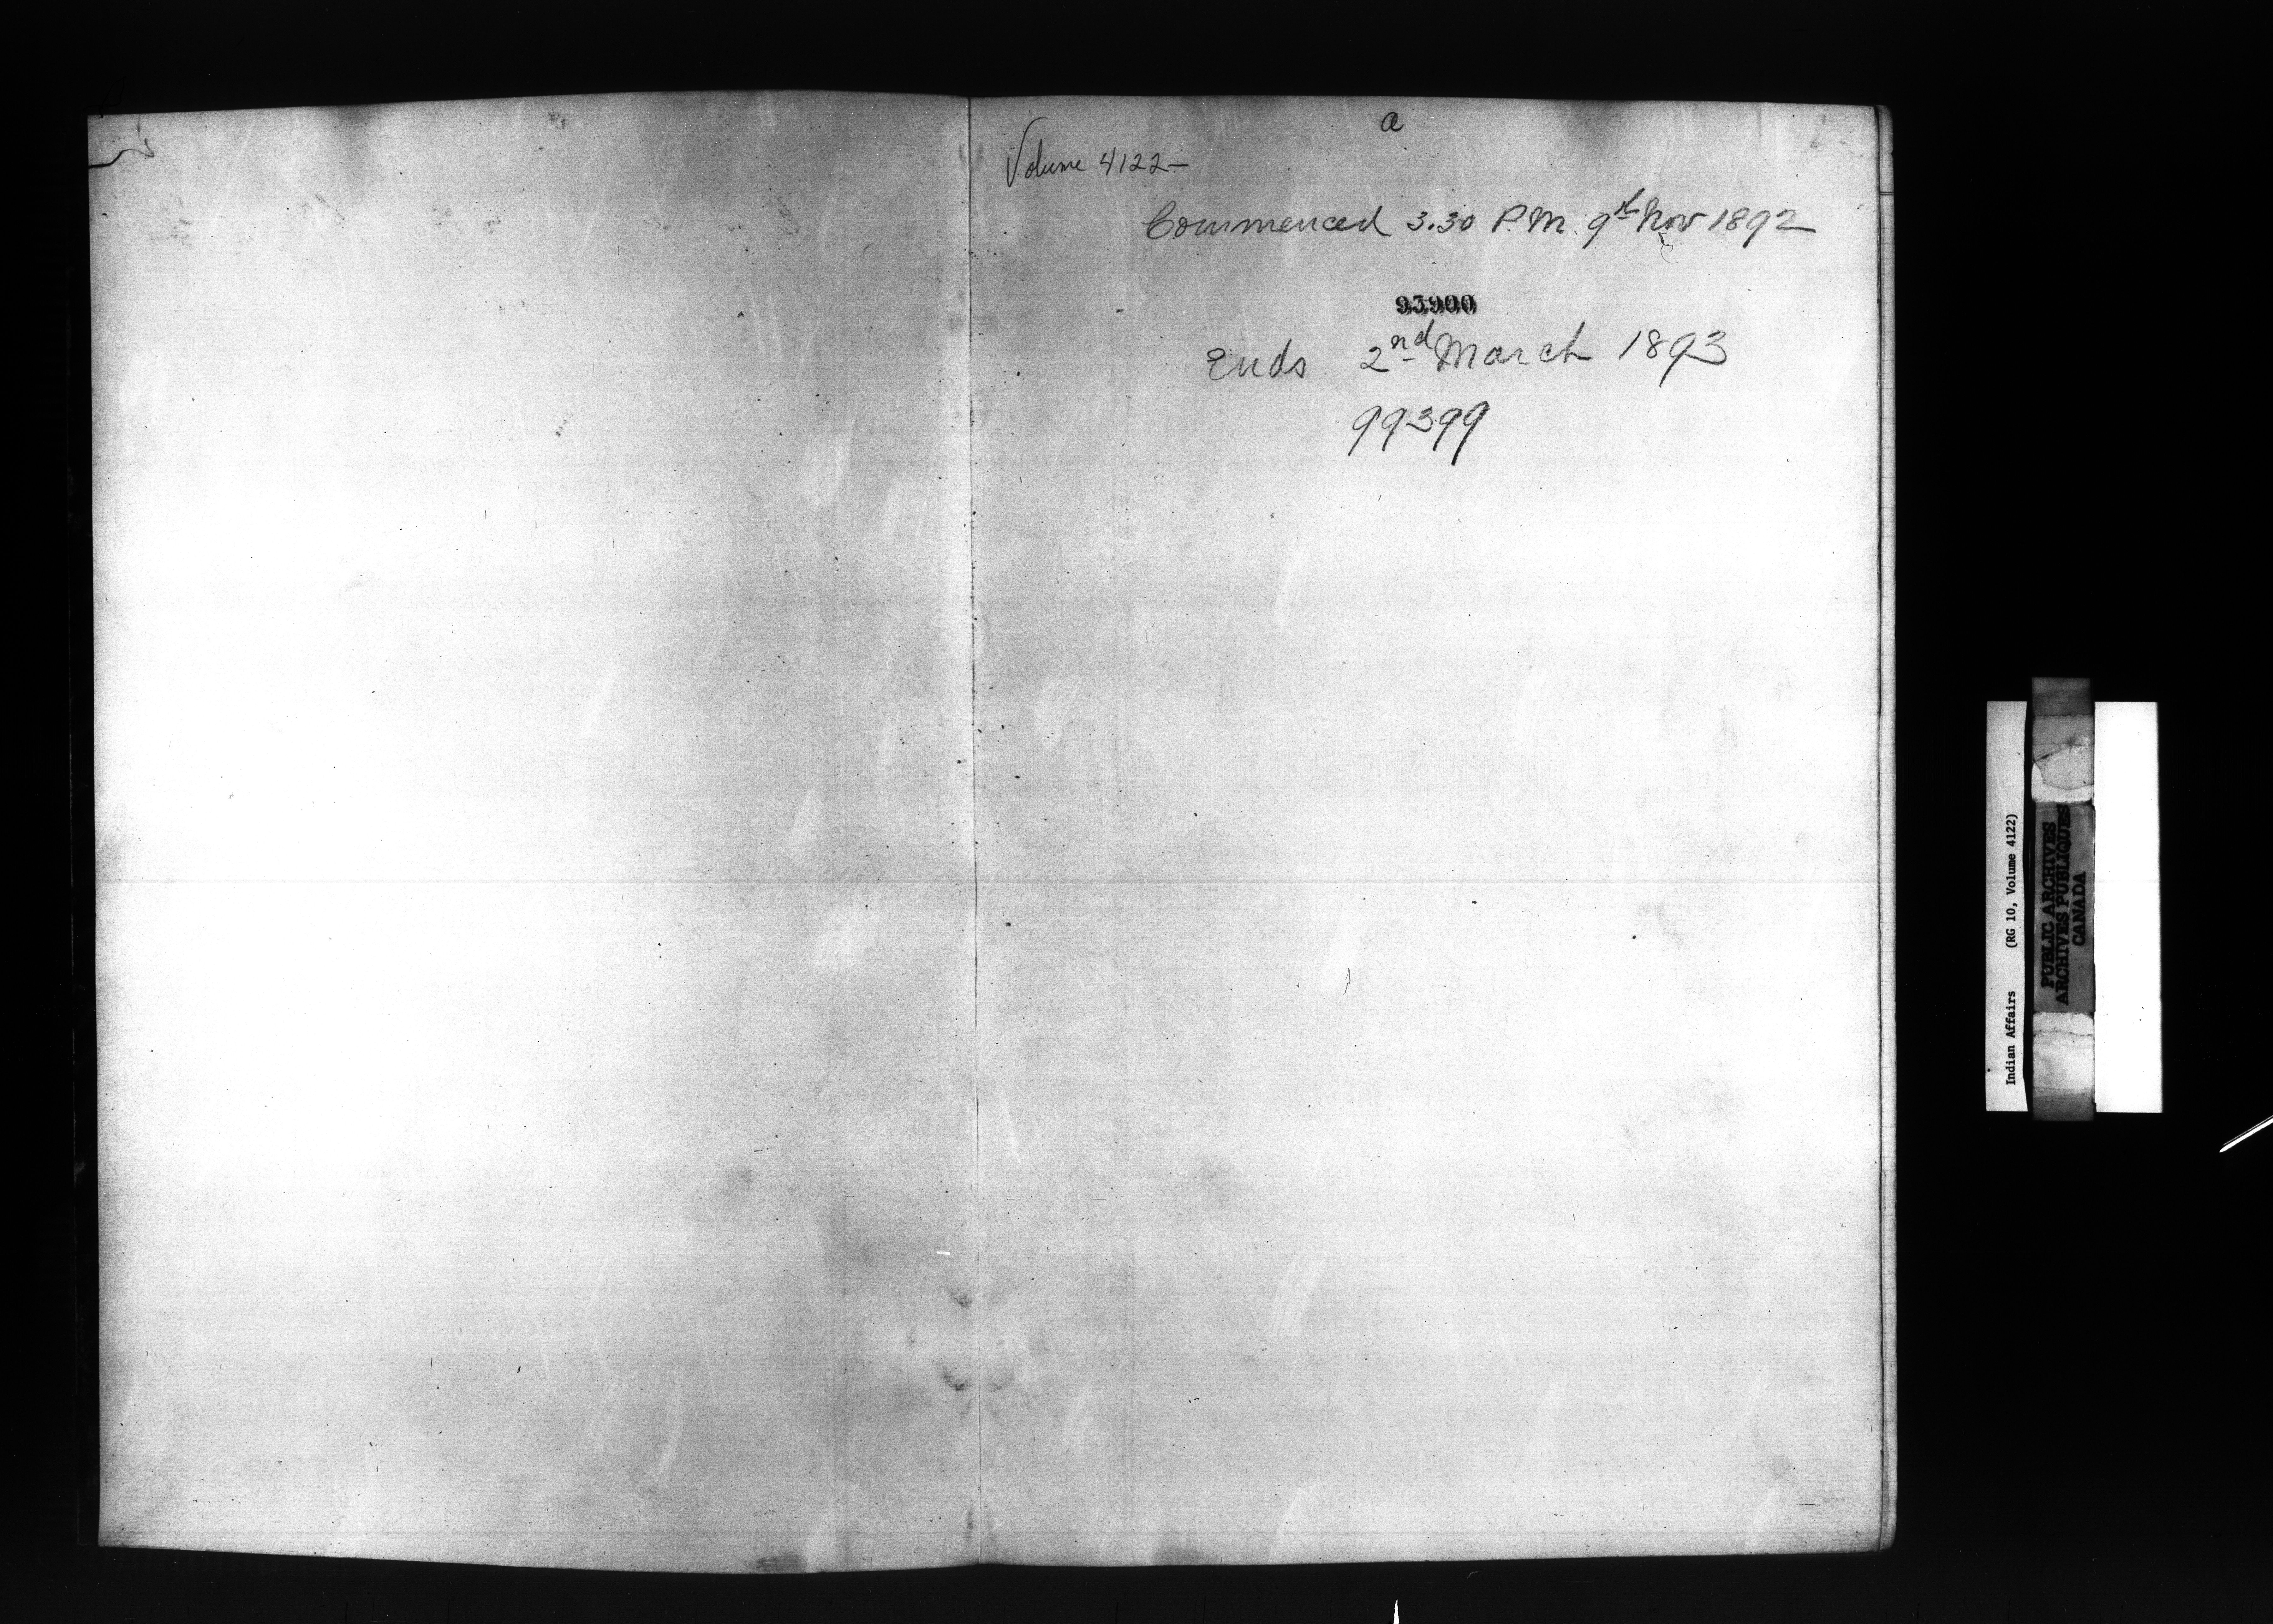 a
Volume 4122-
Commenced 3.30 P.M. 9th Nov 1892
93900
Ends 2nd March 1893
99399
Indian Affairs (RG 10, Volume 4122)
PUBLIC ARCHIVES
ARCHIVES PUBLIQUES
CANADA